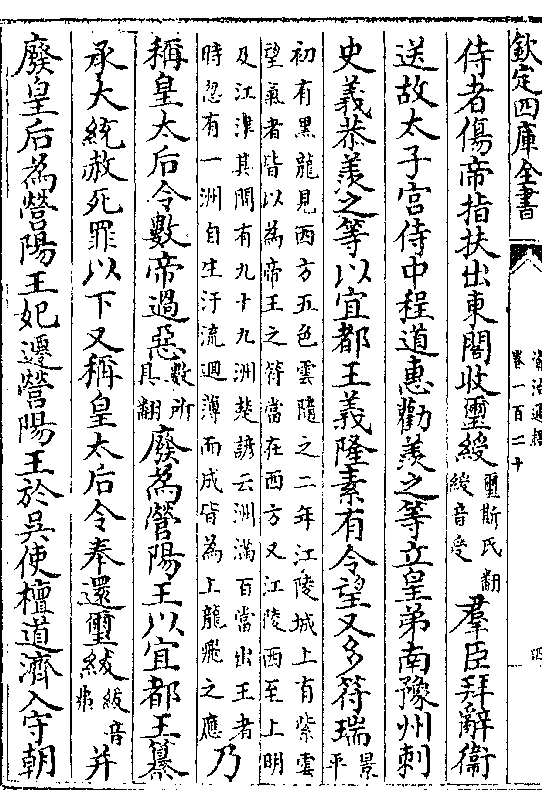 欽定四庫全書
資治通鑑
卷一百二十
四
侍者傷帝指扶出東閤收璽綬璽斯氏翻綬音受羣臣拜辭衞
送故太子宮侍中程道惠勸羨之等立皇弟南豫州刺
史義恭羨之等以宜都王義隆素有令望又多符瑞景平
初有黑龍見西方五色雲隨之二年江陵城上有紫雲
望氣者皆以為帝王之符當在西方又江陵西至上明
及江津其間有九十九洲楚諺云洲滿百當出王者
時忽有一洲自生汙流迴薄而成皆為上龍飛之應乃
稱皇太后令數帝過惡數所具翻廢為營陽王以宜都王纂
承大統赦死罪以下又稱皇太后令奉還璽紱紱音弗并
廢皇后為營陽王妃遷營陽王於吳使檀道濟入守朝